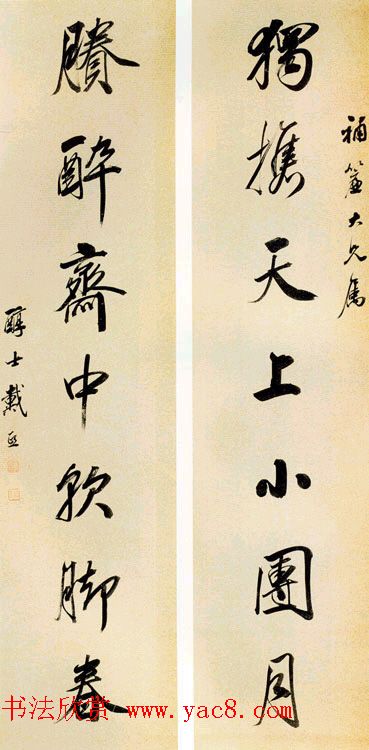 補簾大兄屬
獨攜天上小團月
賸醉齋中軟脚春
醇士戴熙
书法欣赏 www.yac8.com